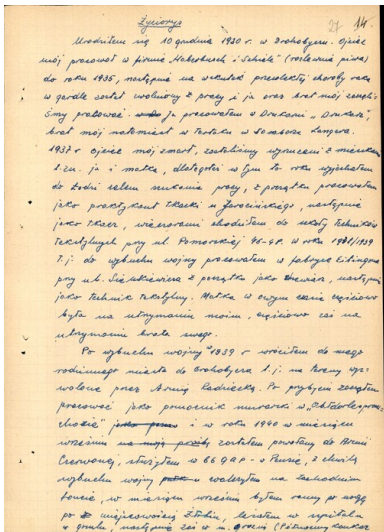 21 14.
Życiorys
Urodziłem się 10 grudnia 1920 r. w Drohobyczu. Ojciec
mój pracował w firmie „Haberbusch i Schiele" (rozlewnia piwa)
do roku 1935, następnie na skutek przewlekłej choroby raka
w gardle został zwolniony z pracy i ja oraz brat mój zaczęli-
śmy pracować. Ja pracowałem w Drukarni „Drukarz",
brat mój natomiast w Tartaku w
1937 r ojciec mój zmarł, zostaliśmy wyrzuceni z mieszkania
t.zn. ja i matka, dlategoteż w tym to roku wyjechałem
do Łodzi celem szukania pracy, z początku pracowałem
jako praktykant tkacki u Jarocińskiego, następnie
jako tkacz, wieczorami chodziłem do szkoły Techników
Tekstylnych przy ul. Pomorskiej 46-48. W roku 1938/1939
t.j. do wybuchu wojny pracowałem w fabryce Eitingona
przy ul. Sienkiewicza z początku jako następnie
jako technik tekstylny. Matka w owym czasie częściowo
była na utrzymaniu moim, częściowo zaś na
utrzymaniu brata mego.
Po wybuchu wojny 1939 r wróciłem do mego
rodzinnego miasta do Drohobycza t.j. na tereny wyz-
wolone przez Armię Radziecką. Po przybyciu zacząłem
pracować jako pomocnik murarski w
i w roku 1940 w miesiącu
wrześniu zostałem powołany do Armii
Czerwonej, służyłem w 66 G A P - w Penzie, z chwilą
wybuchu wojny walczyłem na zachodnim
froncie, w miesiącu wrześniu byłem ranny w nogę
po miejscowości leżałem w szpitalu
w następnie zaś w m. Grozny (Północny Kaukaz